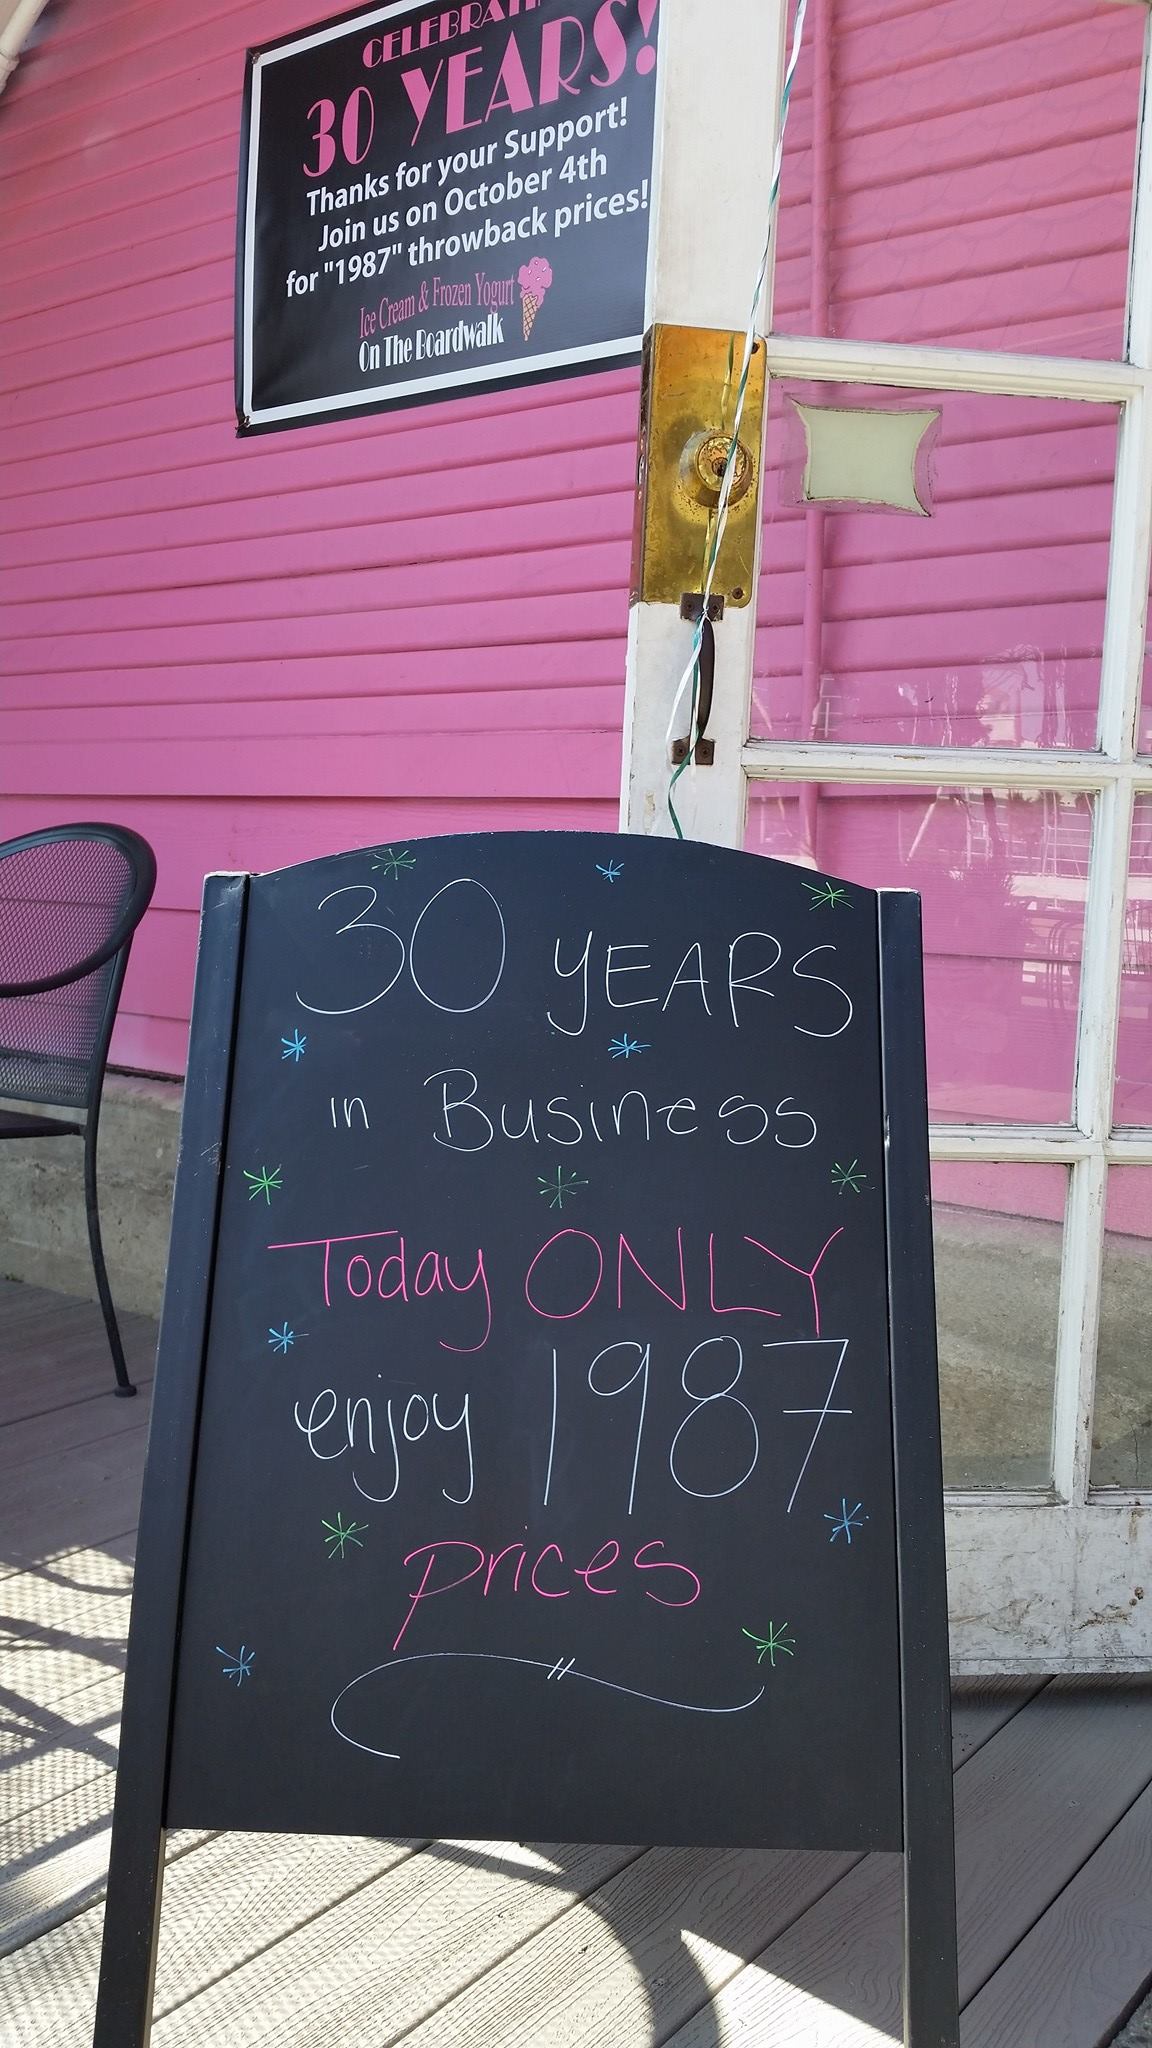 30 YEARS!
Thanks for your Support!
Join us on October 4th
for "1987" throwback prices!
Ice Cream & Frozen Yogurt
On The Boardwalk
30 YEARS
in Business
Today ONLY
enjoy 1987
prices